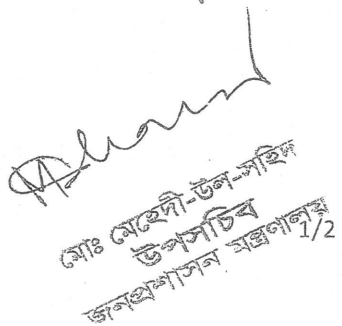 মোঃ মেহেদী-উল-সহিদ
উপসচিব
জনপ্রশাসন মন্ত্রণালয়
1/2